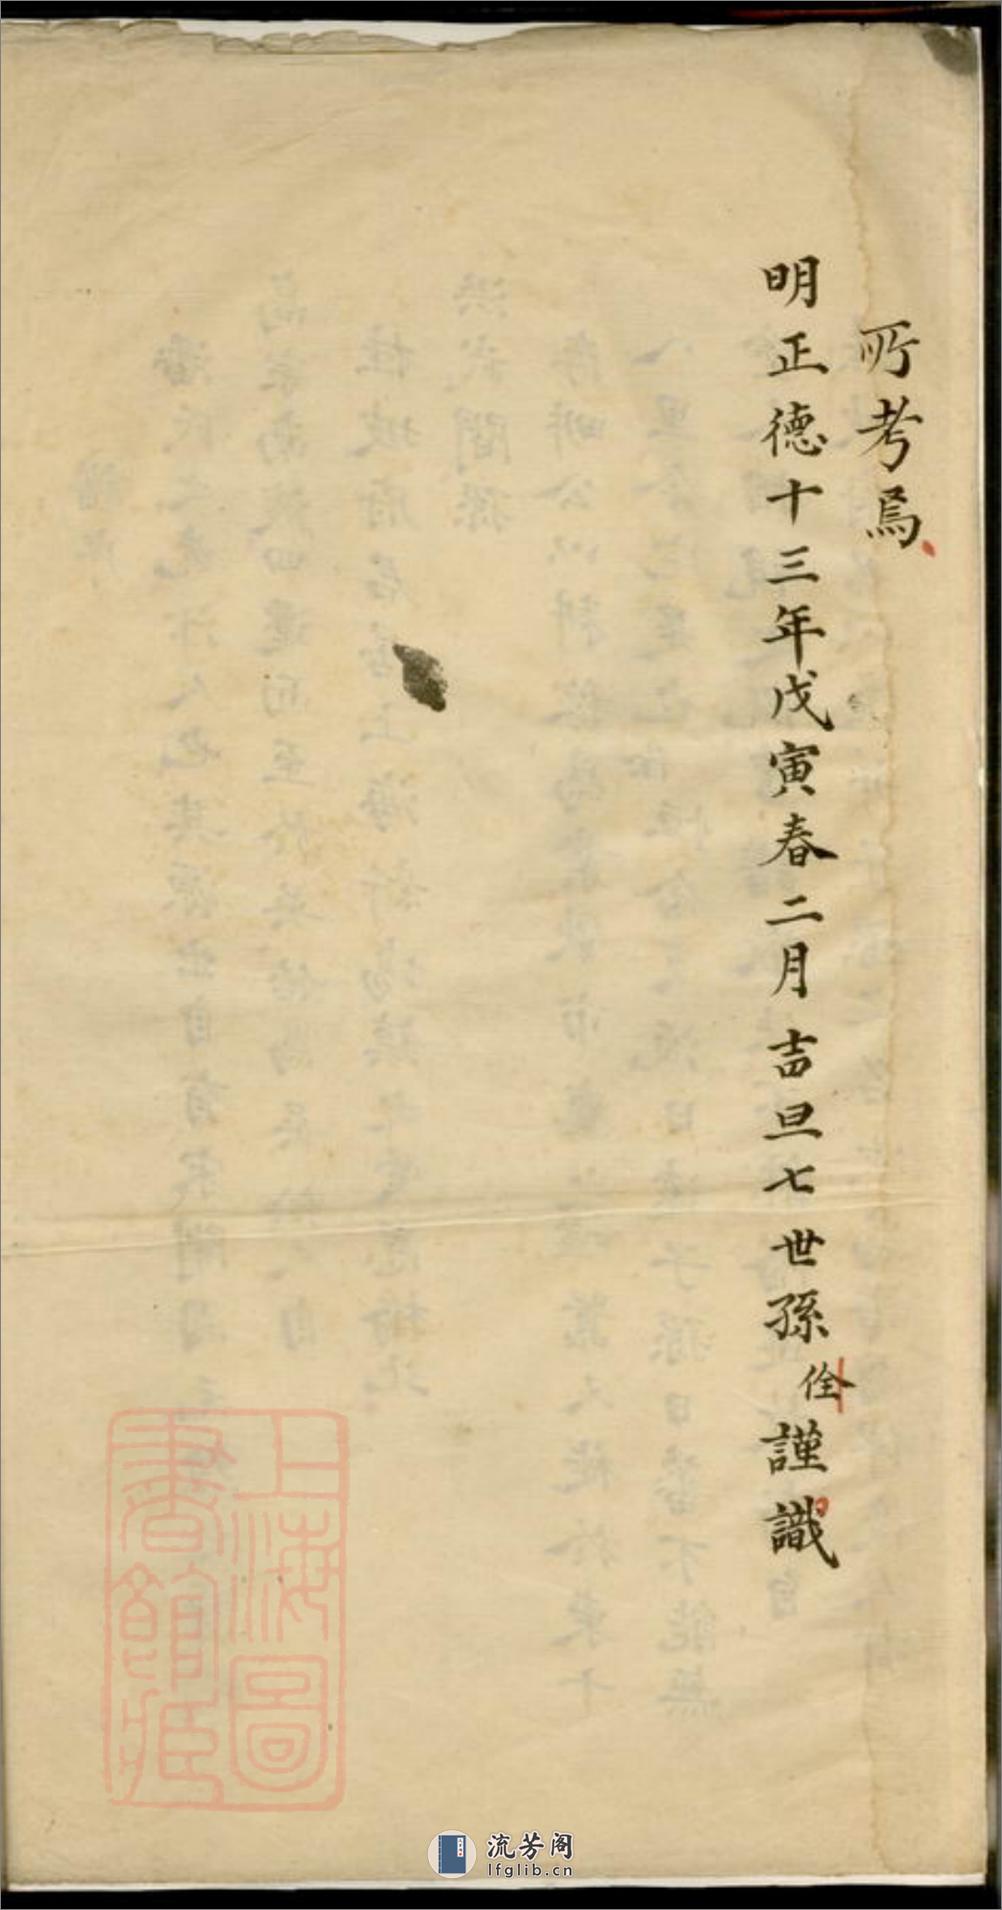 所考焉
明正德十三年戊寅春二月吉旦七世孫佺謹識
上海圖
書館藏
流芳阁
lfglib.cn